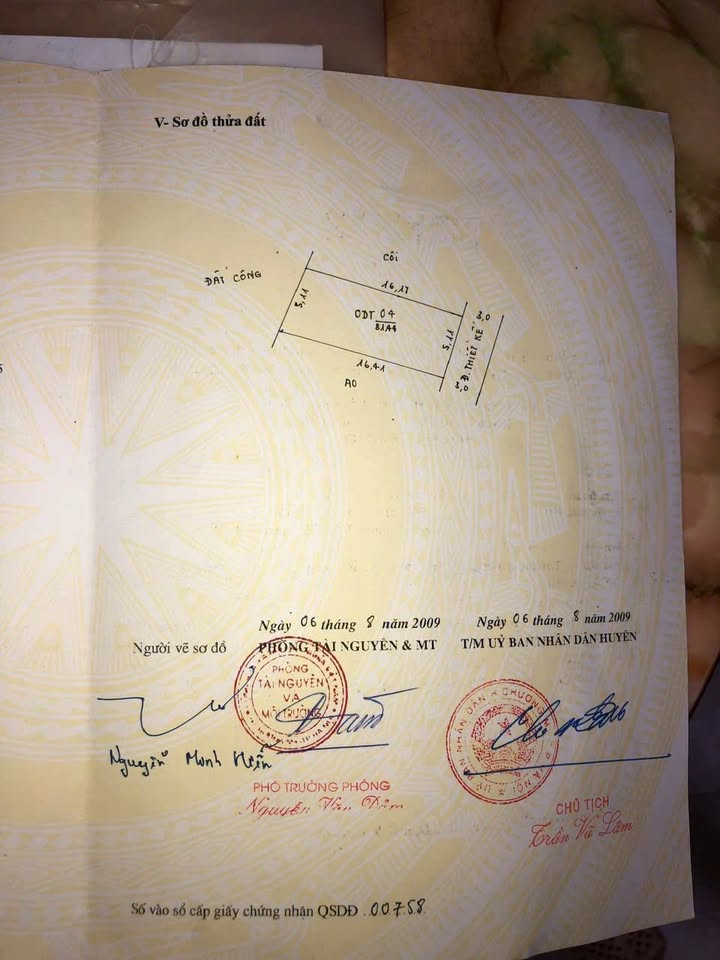 V- Sơ đồ thửa đất
ĐẤT CÔNG
CÔI
16,17
5,11
ODT 04
81A4
5,11
3,0
Đ. THIẾT KẾ
3,0
16,41
AO
Ngày 06 tháng 8 năm 2009
Ngày 06 tháng 8 năm 2009
Người vẽ sơ đồ
PHÒNG TÀI NGUYÊN & MT
T/M UỶ BAN NHÂN DÂN HUYỆN
PHÒNG
TÀI NGUYÊN
VÀ
MÔI TRƯỜNG
UỶ BAN NHÂN DÂN H. CHƯƠNG
Nguyễn Minh Hiền
PHÓ TRƯỞNG PHÒNG
Nguyễn Văn
CHỦ TỊCH
Trần Vũ Lâm
Số vào sổ cấp giấy chứng nhận QSDĐ .00758